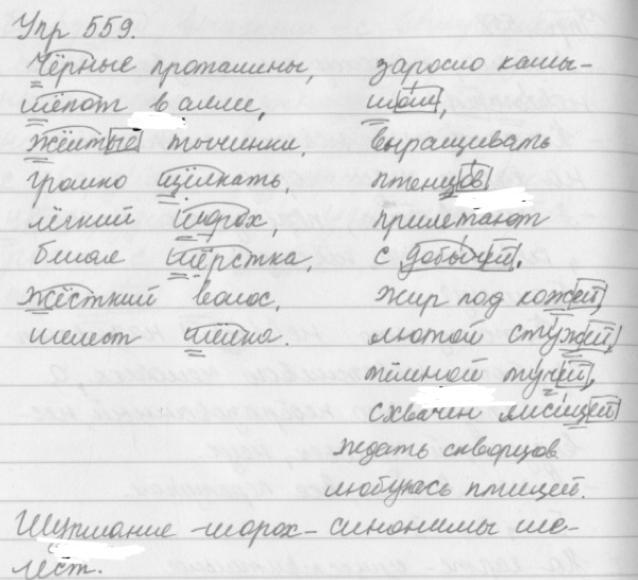 Упр 559.
Чёрные проталины,
шёпот в аллее,
жёлтые тычинки,
громко щёлкать,
лёгкий шорох,
белая шёрстка,
жёсткий волос,
шелест шёлка.
заросло камы-
шом,
выращивать
птенцов
прилетают
с добычей,
жир под кожей,
лютой стужей,
тёмной тучей,
схвачен лисицей
ждать скворцов
любуясь птицей.
Шуршание - шорох - синонимы ше-
лест.